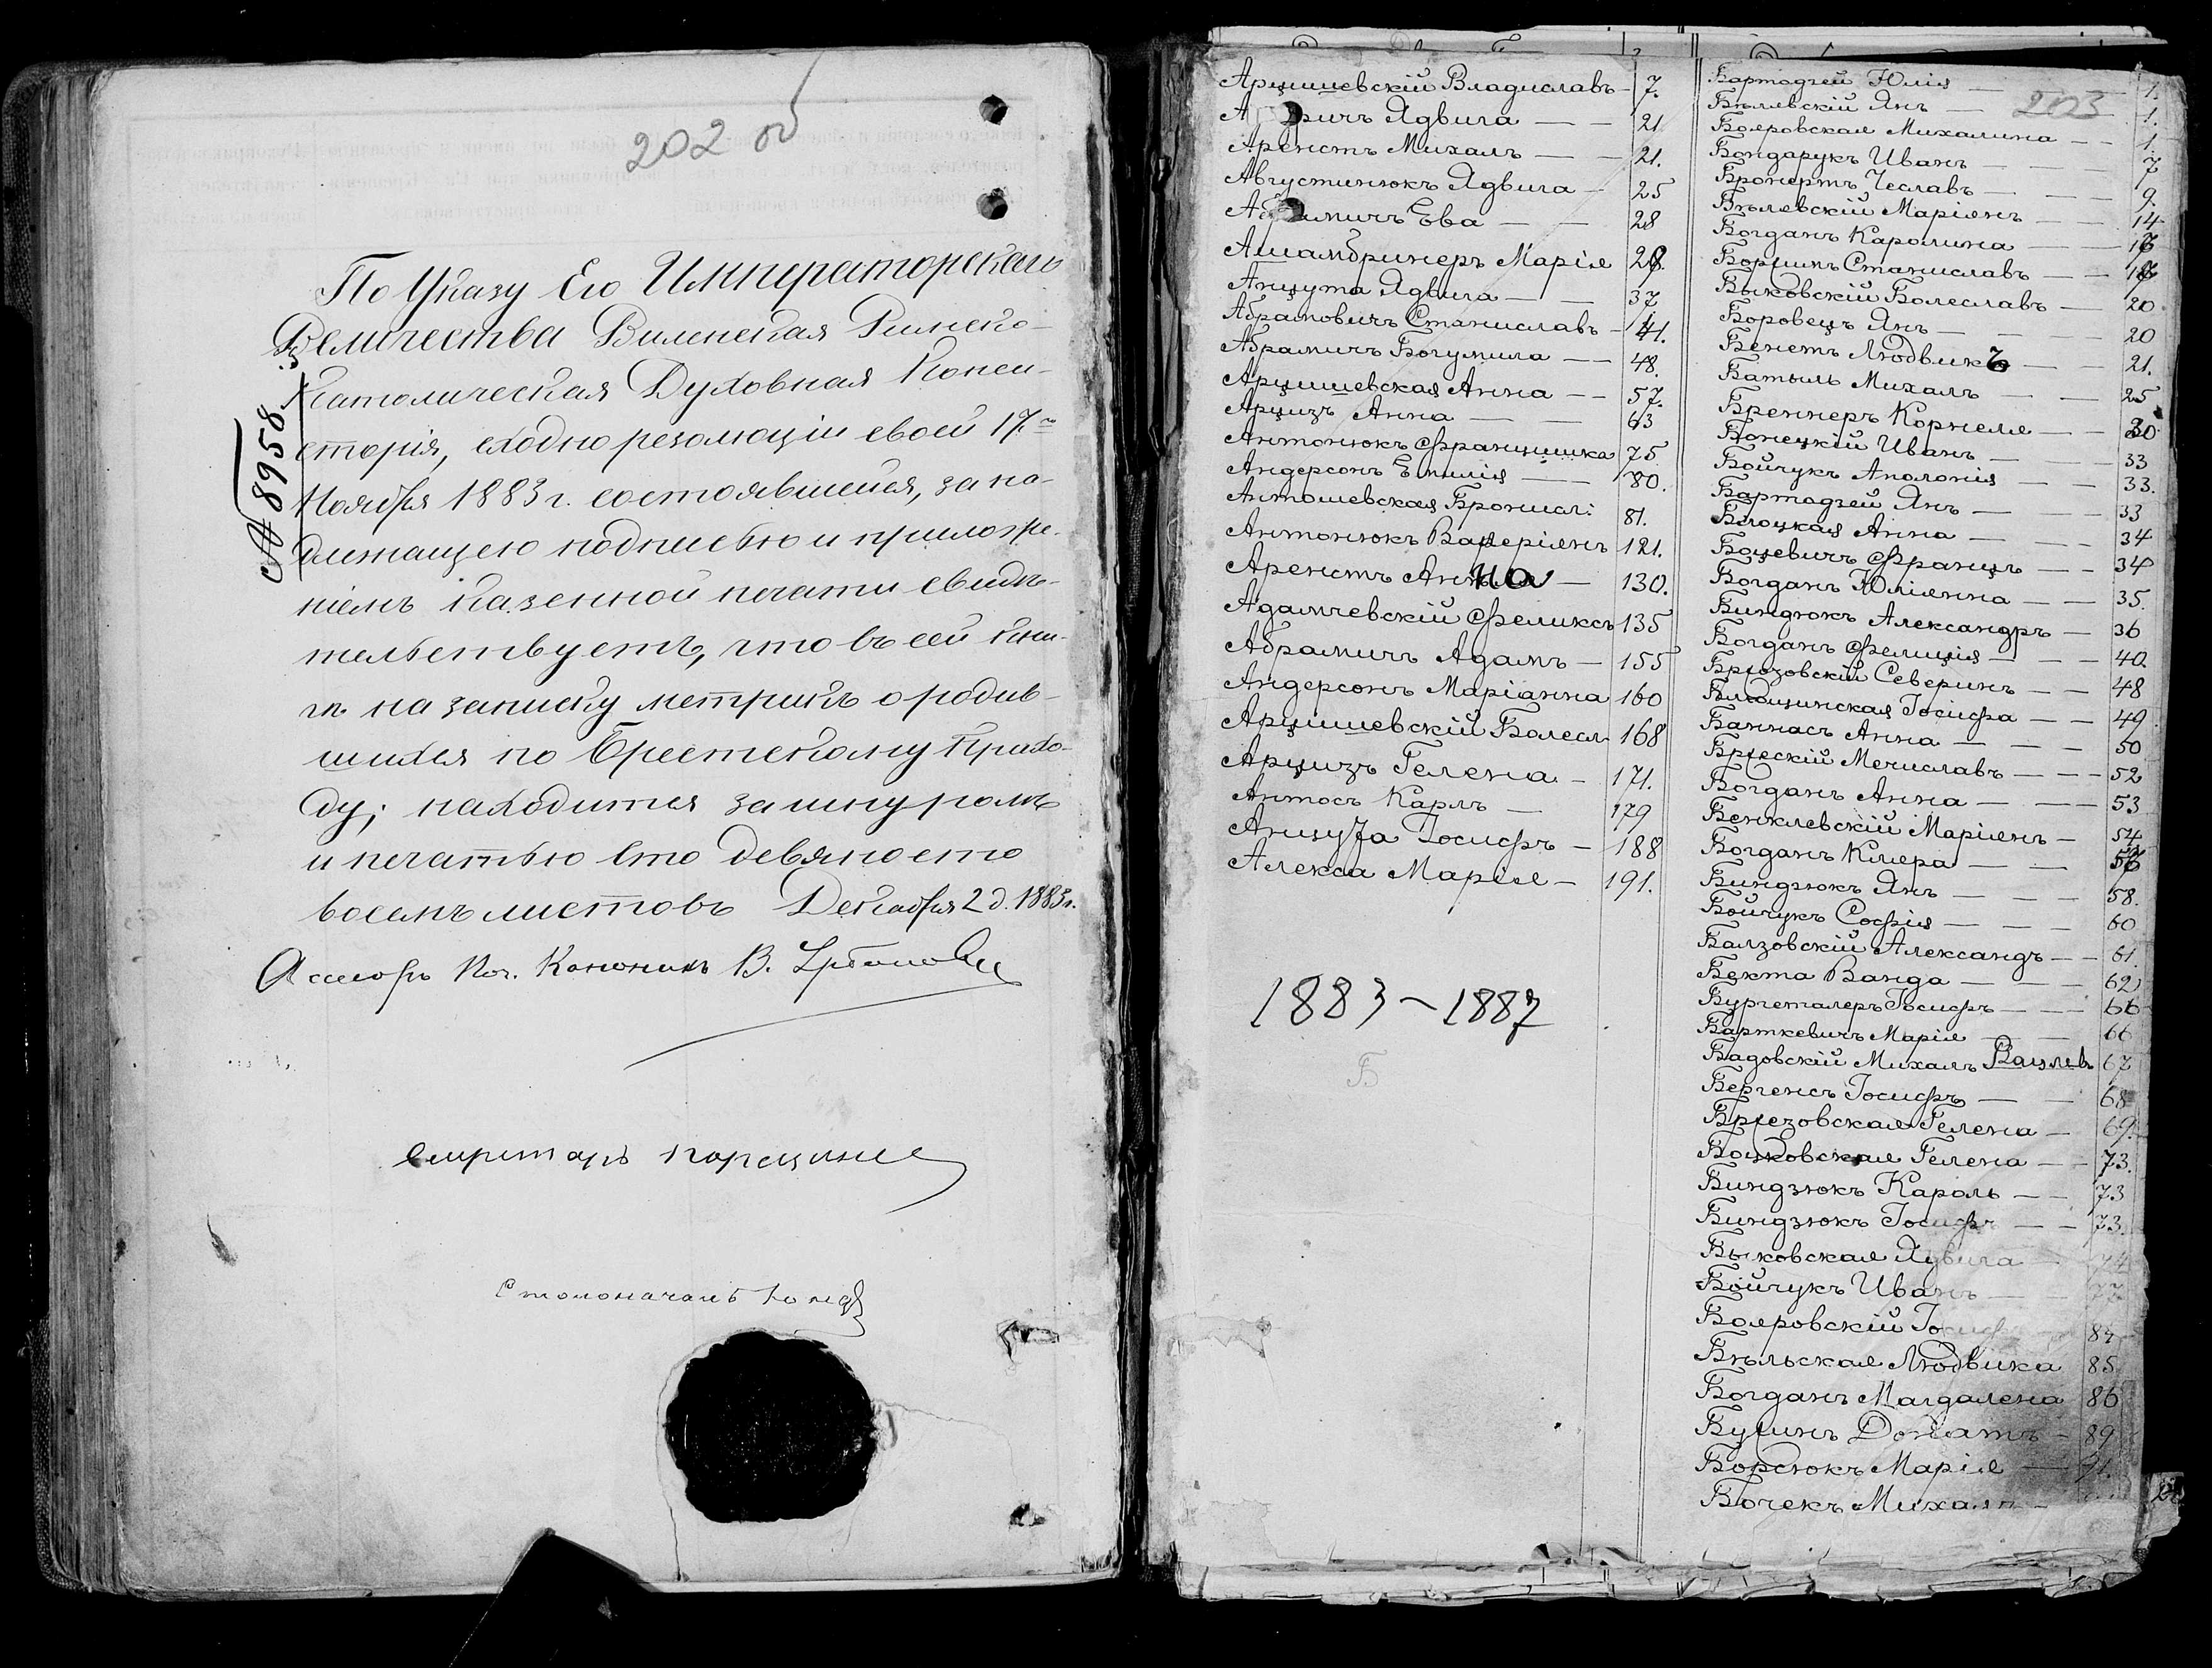 202 об
№ 8958.
По Указу Его Императорскаго
Величества Виленская Римско-
Католическая Духовная Конси-
сторія, сходно резолюціи своей 17го
Ноября 1883 г. состоявшейся, за на-
длежащею подписью и приложе-
ніемъ казенной печати свидѣ-
тельствуетъ, что въ сей кни-
гѣ на записку метрикъ о родив-
шихся по Брестскому прихо-
ду; находится за шнуромъ
и печатью сто девяносто
восемъ листовъ Декабря 2 д. 1883 г.
Ассесоръ Поч. Каноникъ В.
Секретарь
Столоначаль
Арцишевскій Владиславъ - 7.
Ядвига — — 21
Аренстъ Михалъ — — 21.
Августинюкъ Ядвига — 25
Абрамичъ Ева — — 28
Ашамбринеръ Марія 28.
Анцута Ядвига — — 37
Абрамовичъ Станиславъ - 41.
Абрамичъ Богумила — — 48.
Арцишевская Анна — — 57.
Арцизъ Анна — — 63
Антонюкъ Францишка 75
Андерсонъ Емилія — — 80.
Антошевская Бронисл: 81.
Антонюкъ Валеріянъ 121.
Аренстъ — 130.
Адамчевскій Феликсъ 135
Абрамичъ Адамъ — 155
Андерсонъ Маріанна 160
Арцишевскій Болесл 168
Арцизъ Гелена — 171.
Антосъ Карлъ — 179
Анцута Іосифъ — 188
Алекса Марія — 191.
1883 - 1887
Б
203
Бартодзей Юлія — 1.
Бѣлевскій Янъ — 1.
Бояровская Михалина — — 1
Бондарукъ Иванъ — — 7
Бронертъ Чеславъ — — 9.
Бѣлевскій Маріянъ — — 14
Богданъ Каролина — — 16
Станиславъ — —
Быковскій Болеславъ — 20
Боровецъ Янъ — — 20
Бенетъ Людвикъ — — 21.
Батыль Михалъ — — 25
Бреннеръ Корнеля — — 30
Бонецкій Иванъ — — 33
Бойчукъ Аполонія — — 33.
Бартодзей Янъ — — 33
Блоцкая Анна — — 34
Боцевичъ Францъ — — 34
Богданъ Юліянна — — 35.
Биндюкъ Александръ — 36
Богданъ Фелиція — — 40.
Брюзовскій Северинъ — — 48
Іосифа — — 49
Баннасъ Анна — — 50
Мечиславъ — — 52
Богданъ Анна — — 53
Бенклевскій Маріянъ — 54
Богданъ Клара — — 56
Биндзюкъ Янъ — — 58.
Бойчукъ Софія — — 60
Балзовскій Александръ — — 61.
Бекта Ванда — — 62
Бургеталеръ Іосифъ — — 66
Барткевичъ Марія — 66
Бадовскій Михалъ Вацлавъ 67
Бергенсъ Іосифъ — — 68
Брезовская Гелена — 69.
Гелена — — 73.
Биндзюкъ Кароль — — 73
Биндзюкъ Іосифъ — — 73.
Быковская Ядвига — 74
Бойчукъ Иванъ — — 77
Бояровскій Іосифъ 84
Бѣльская Людвика 85
Богданъ Магдалена 86
Донатъ - 89
Борсюкъ Марія — 91.
Бочекъ Михалъ —